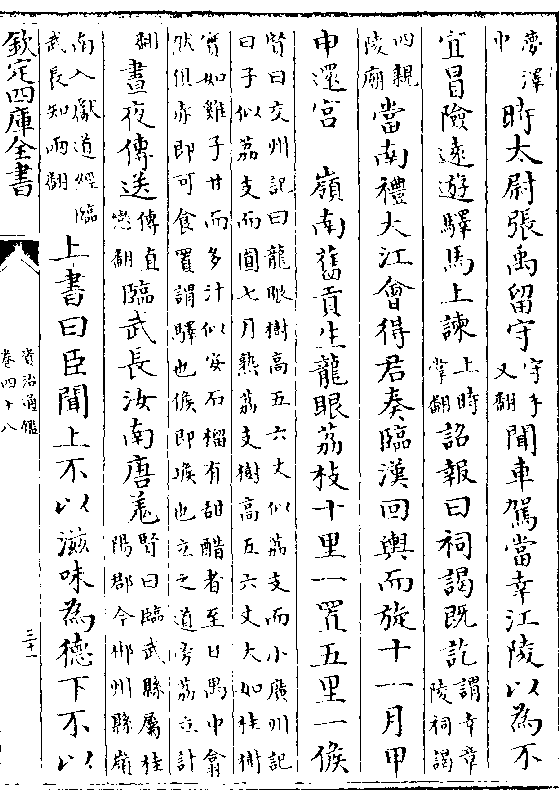 夢澤
巾時太尉張禹留守守手又翻聞車駕當幸江陵以為不
宜冒險遠遊驛馬上諫上時掌翻詔報曰祠謁既訖謂幸章陵祠謁
四親陵廟當南禮大江會得君奏臨漢回輿而旋十一月甲
申還宮 嶺南舊貢生龍眼荔枝十里一置五里一候
賢曰交州記曰龍眼樹高五六丈似荔支而小廣州記
曰子似荔支而圓七月熟荔支樹高五六丈大如桂樹
實如雞子甘而多汁似安石榴有甜醋者至日禺中翕
然俱赤即可食置謂驛也候即堠也立之道旁荔立計
翻晝夜傳送傳直戀翻臨武長汝南唐羌賢曰臨武縣屬桂陽郡今郴州縣嶺
南入獻道經臨武長知兩翻上書曰臣聞上不以滋味為德下不以
欽定四庫全書
資治通鑑
卷四十八
三十一